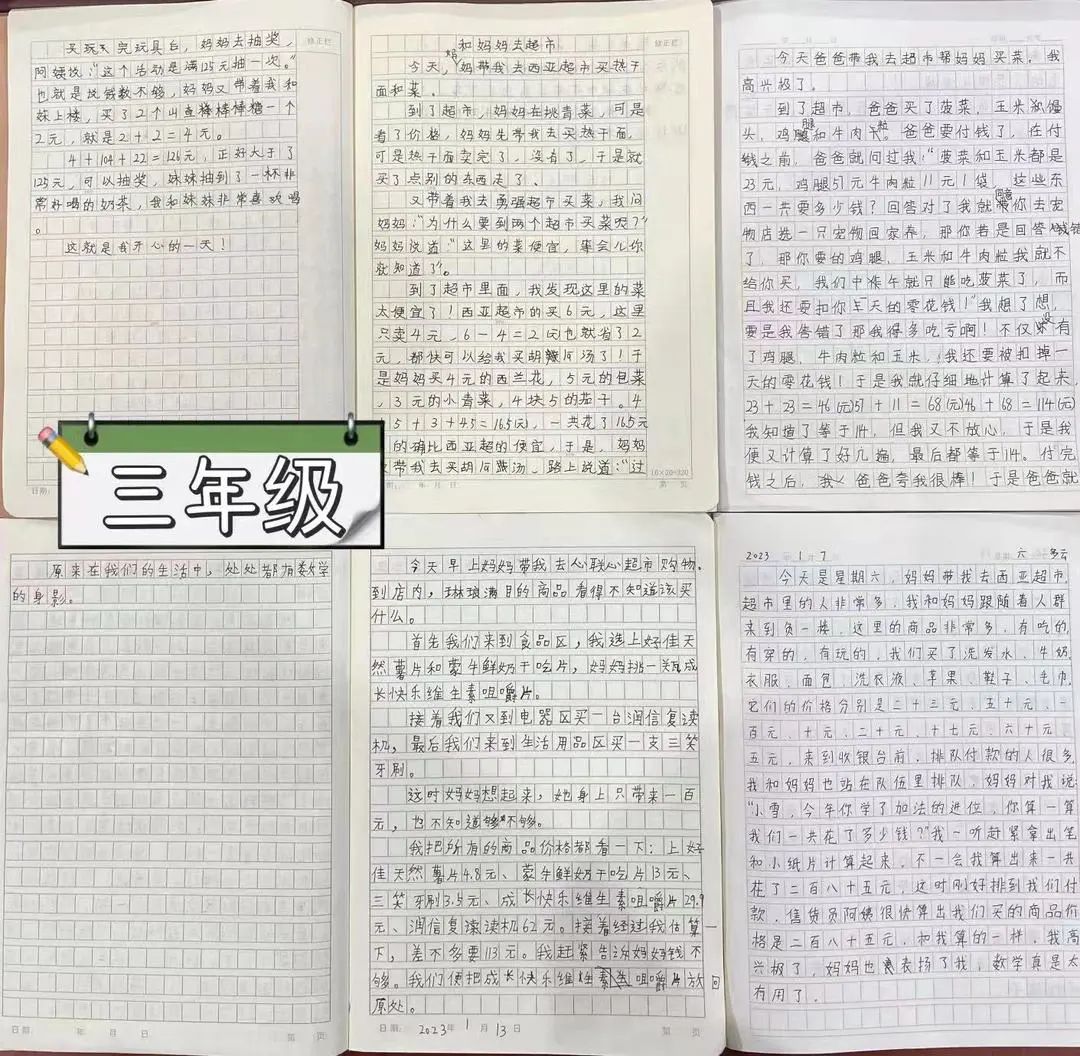 买玩具完玩具后，妈妈去抽奖，
阿姨说：“这个活动是满125元抽一次。”
也就是说钱数不够，妈妈又带着我和
妹上楼，买了2个山查棒棒糖一个
2元，就是2＋2＝4元。
4＋104＋22＝126元，正好大于了
125元，可以抽奖，妹妹抽到了一杯非
常好喝的奶茶，我和妹妹非常喜欢喝
。
这就是我开心的一天！
日期：
修正栏
和妈妈去超市
修正栏
今天，妈妈带我去西亚超市买热干
面和菜。
到了超市，妈妈在挑青菜，可是
看了价格，妈妈先带我去买热干面，
可是热干面卖完了，没有了，于是就
买了点别的东西走了、
又带着我去勇强超市买菜，我问
妈妈：“为什么要到两个超市买菜呢？”
妈妈说道：“这里的菜便宜，等会儿你
就知道了”。
到了超市里面，我发现这里的菜
太便宜了！西亚超市的买6元，这里
只卖4元，6－4＝2(元)也就省了2
元，都快可以给我买胡辣汤了！于
是妈妈买4元的西兰花，5元的包菜
，3元的小青菜，4块5的茄子。4
＋5＋3＋4.5＝16.5(元)，一共花了16.5元
的确比西亚超的便宜，于是，妈妈
带我去买胡辣汤，路上说道：“过
16×20=320
年 月 日
第 页
今天爸爸带我去超市帮妈妈买菜，我
高兴极了。
到了超市，爸爸买了菠菜，玉米，馒
头，鸡腿和牛肉粒。爸爸要付钱了，在付
钱之前，爸爸就问过我：“菠菜和玉米都是
23元，鸡腿57元牛肉粒11元1袋，这些东
西一共要多少钱？回答对了我就同意带你去宠
物店选一只宠物回家养，那你若是回答错
了，那你要的鸡腿，玉米和牛肉粒我就不
给你买，我们中午就只能吃菠菜了，而
且我还要扣你一天的零花钱！”我想了想，
要是我答错了那我得多吃亏啊！不仅没有
了鸡腿，牛肉粒和玉米，我还要被扣掉一
天的零花钱！于是我就仔细地计算了起来，
23＋23＝46(元)57＋11＝68(元)46＋68＝114(元)
我知道了等于114，但我又不放心，于是我
便又计算了好几遍，最后都等于114。付完
钱之后，爸爸夸我很棒！于是爸爸就
三年级
原来在我们的生活中，处处都有数学
的身影。
日期： 年 月 日
第 页
今天早上妈妈带我去心联心超市购物，
到店内，琳琅满目的商品看得不知道该买
什么。
首先我们来到食品区，我选上好佳天
然薯片和蒙牛鲜奶干吃片，妈妈挑一瓶成
长快乐维生素咀嚼片。
接着我们又到电器区买一台润信复读
机，最后我们来到生活用品区买一支三笑
牙刷。
这时妈妈想起来，她身上只带来一百
元，也不知道够不够。
我把所有的商品价格都看一下：上好
佳天然薯片4.8元、蒙牛鲜奶干吃片13元、
三笑牙刷3.5元、成长快乐维生素咀嚼片29.9
元、润信复读机62元。接着经过我估算一
下，差不多要113元。我赶紧告诉妈妈钱不
够。我们便把成长快乐维生素咀嚼片放回
原处。
日期： 2023年 1月 13日
第 页
2023 年 1 月 7 六 多云
今天是星期六，妈妈带我去西亚超市，
超市里的人非常多，我和妈妈跟随着人群
来到负一楼，这里的商品非常多，有吃的，
有穿的，有玩的，我们买了洗发水、牛奶、
衣服、面包、洗衣液、苹果、鞋子、毛巾，
它们的价格分别是二十三元、五十元、一
百元、十元、二十元、十七元、六十元、
五元，来到收银台前，排队付款的人很多，
我和妈妈也站在队伍里排队，妈妈对我说：
“小雪，今年你学了加法的进位，你算一算
我们一共花了多少钱？”我一听赶紧拿出笔
和小纸片计算起来，不一会我算出来一共
花了二百八十五元，这时刚好排到我们付
款，售货员阿姨很快算出我们买的商品价
格是二百八十五元，和我算的一样，我高
兴极了，妈妈也表扬了我，数学真是太
有用了。